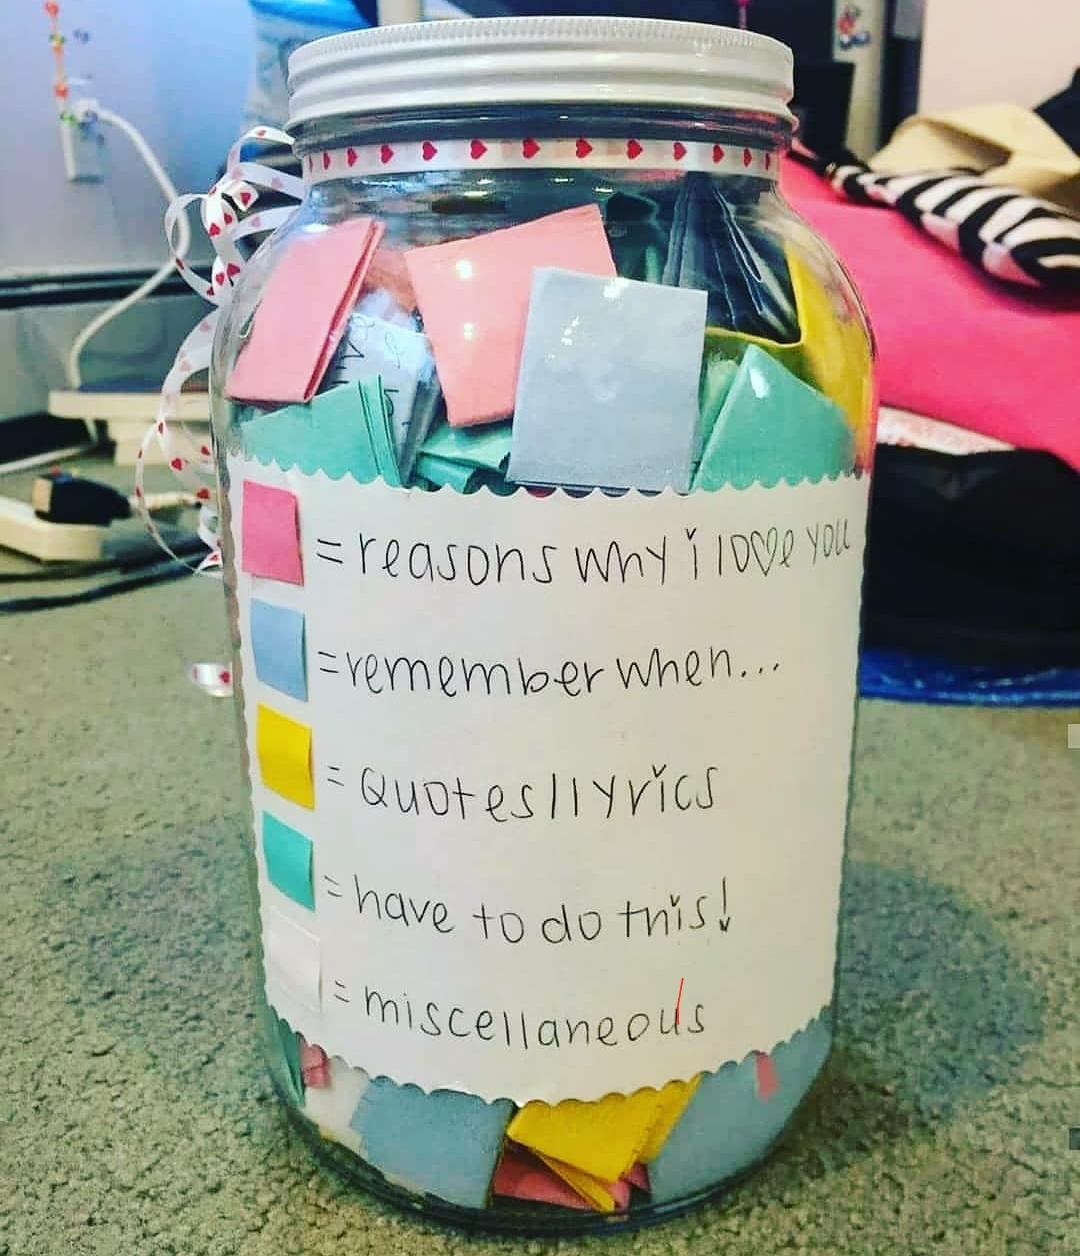 = reasons why i love you
= remember when...
= Quotes/lyrics
= have to do this!
= miscellaneous